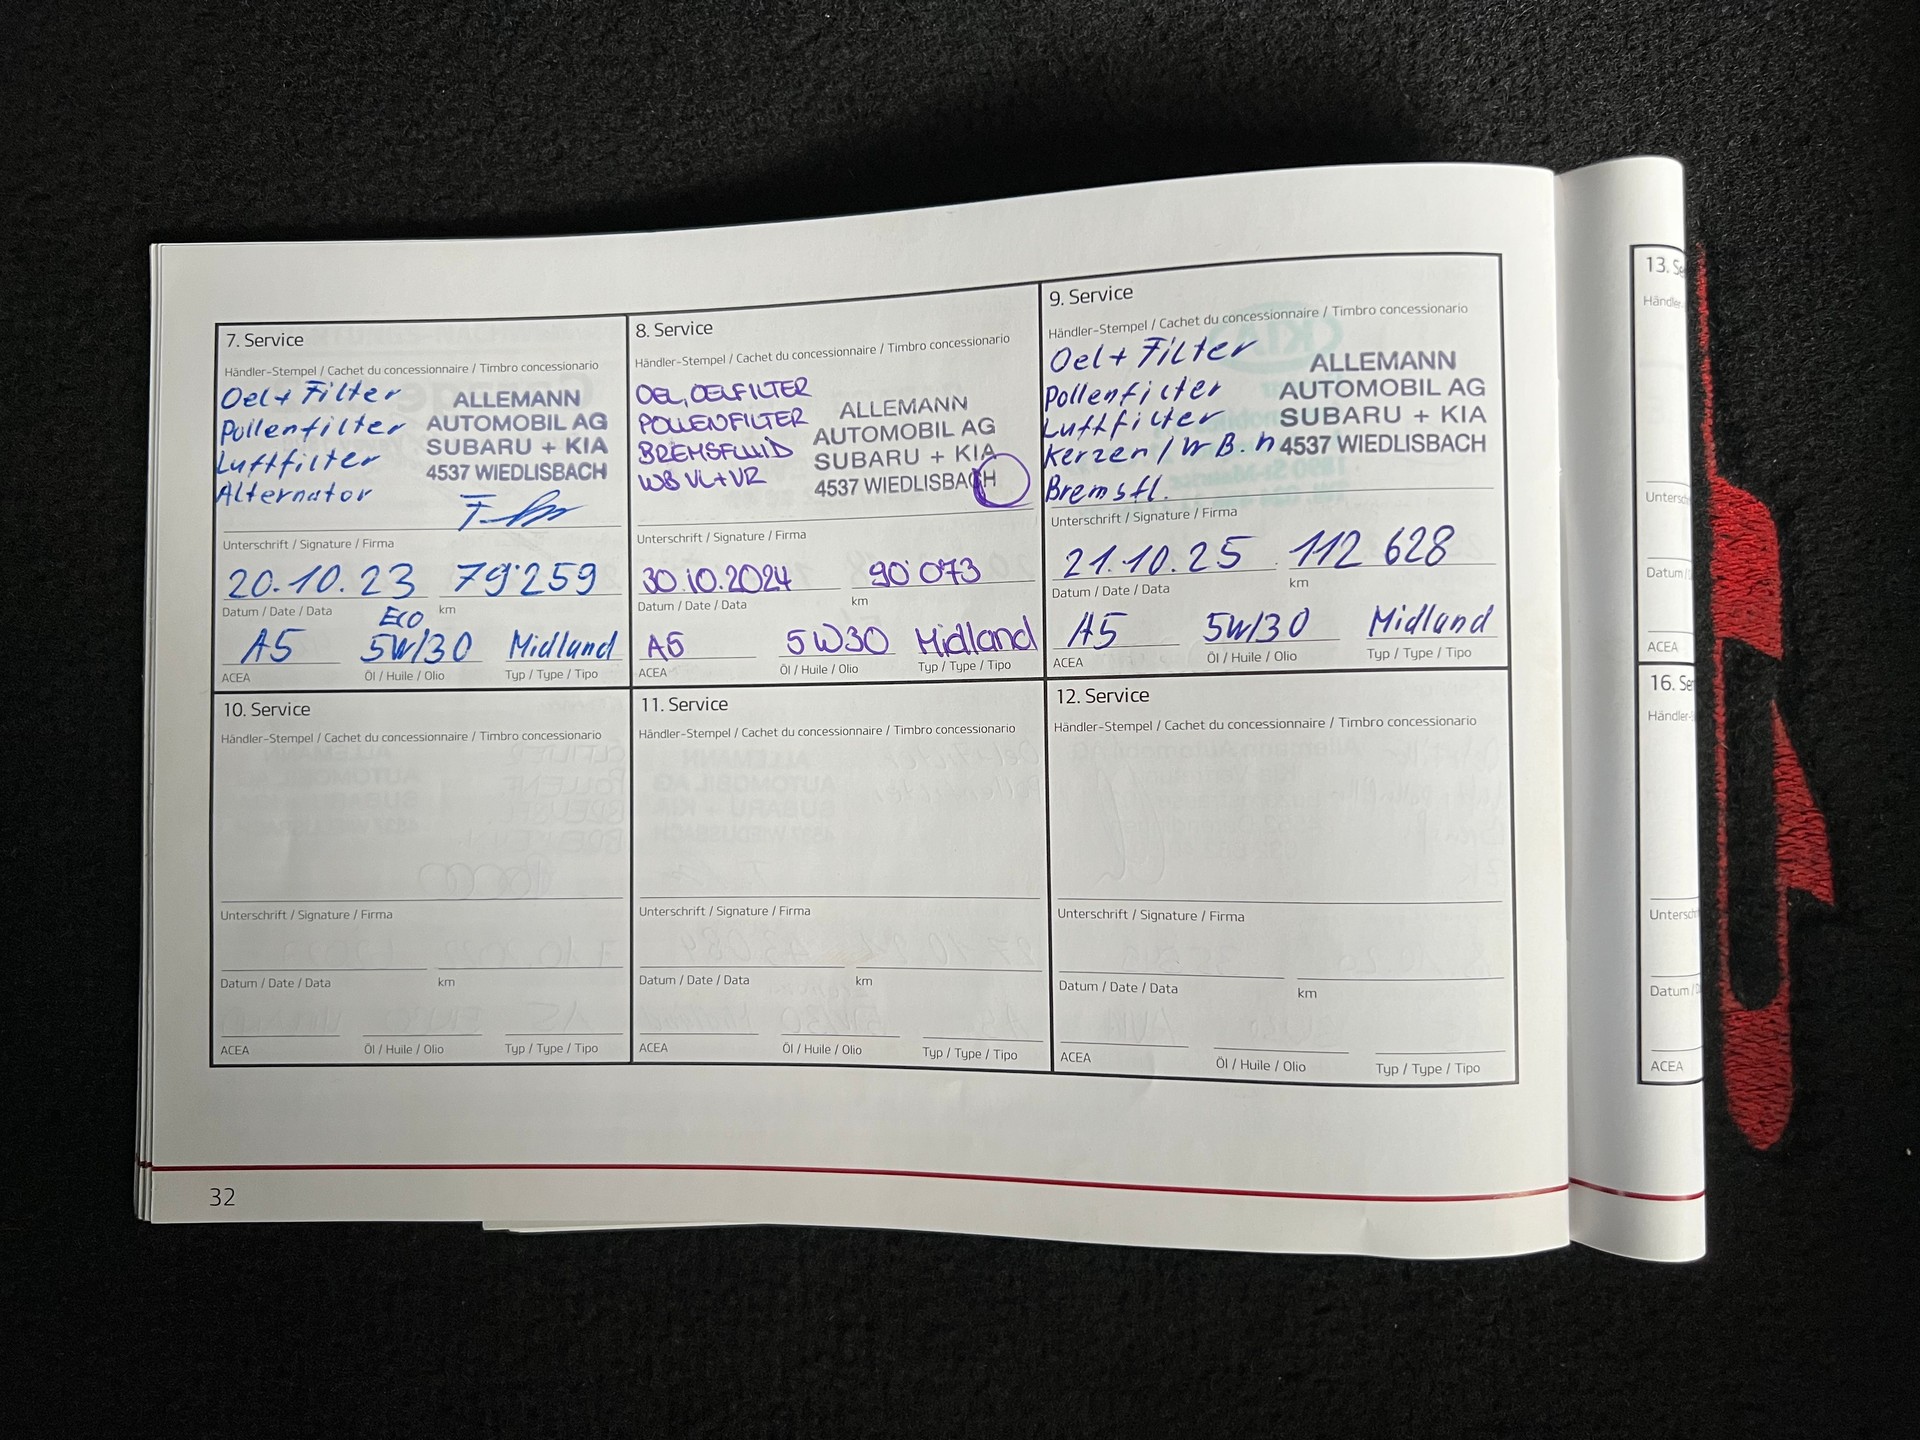 7. Service
Händler-Stempel / Cachet du concessionnaire / Timbro concessionario
Oel + Filter
Pollenfilter
Luftfilter
Alternator
ALLEMANN
AUTOMOBIL AG
SUBARU + KIA
4537 WIEDLISBACH
Unterschrift / Signature / Firma
20.10.23 79'259
Datum / Date / Data km
Eco
A5 5W/30 Midland
ACEA Öl / Huile / Olio Typ / Type / Tipo
8. Service
Händler-Stempel / Cachet du concessionnaire / Timbro concessionario
OEL, OELFILTER
POLLENFILTER
BREMSFLUID
WB VL+VR
ALLEMANN
AUTOMOBIL AG
SUBARU + KIA
4537 WIEDLISBACH
Unterschrift / Signature / Firma
30.10.2024 90'073
Datum / Date / Data km
A5 5W30 Midland
ACEA Öl / Huile / Olio Typ / Type / Tipo
9. Service
Händler-Stempel / Cachet du concessionnaire / Timbro concessionario
Oel + Filter
Pollenfilter
Luftfilter
Kerzen / W B. h
Bremsfl.
ALLEMANN
AUTOMOBIL AG
SUBARU + KIA
4537 WIEDLISBACH
Unterschrift / Signature / Firma
21.10.25 112 628
Datum / Date / Data km
A5 5W/30 Midland
ACEA Öl / Huile / Olio Typ / Type / Tipo
10. Service
Händler-Stempel / Cachet du concessionnaire / Timbro concessionario
Unterschrift / Signature / Firma
Datum / Date / Data km
ACEA Öl / Huile / Olio Typ / Type / Tipo
11. Service
Händler-Stempel / Cachet du concessionnaire / Timbro concessionario
Unterschrift / Signature / Firma
Datum / Date / Data km
ACEA Öl / Huile / Olio Typ / Type / Tipo
12. Service
Händler-Stempel / Cachet du concessionnaire / Timbro concessionario
Unterschrift / Signature / Firma
Datum / Date / Data km
ACEA Öl / Huile / Olio Typ / Type / Tipo
32
13. Se
Händler-
Untersch
Datum /
ACEA
16. Se
Händler-S
Untersch
Datum / D
ACEA